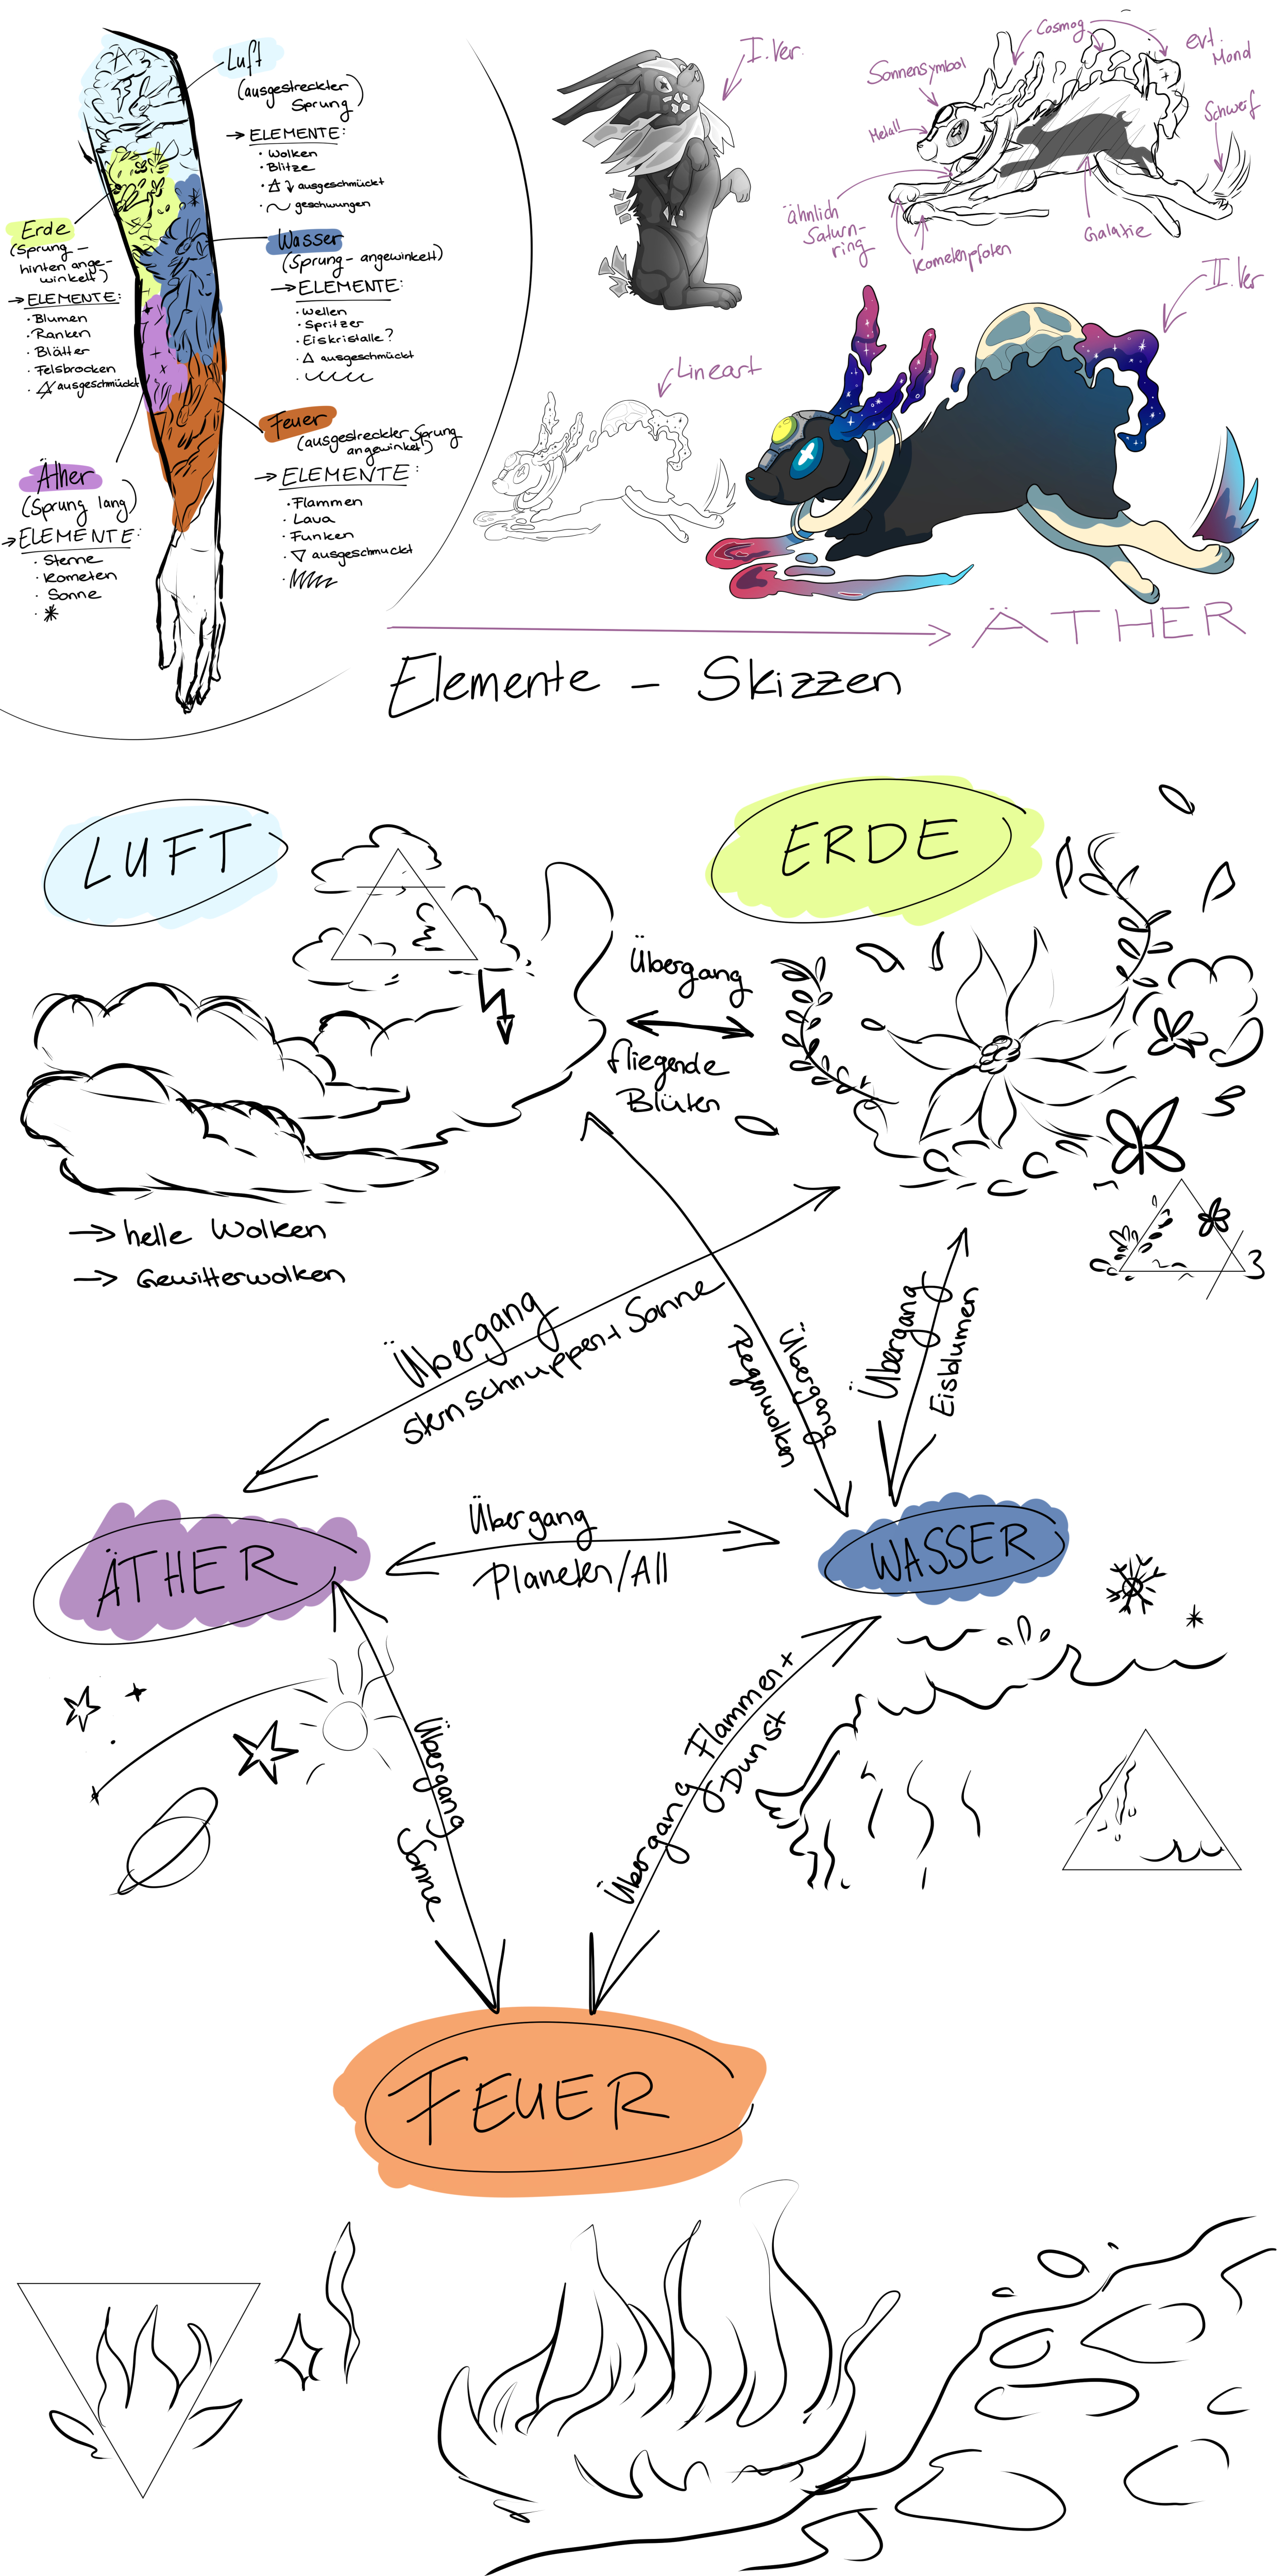 Luft
(ausgestreckter
Sprung)
→ ELEMENTE:
· Wolken
· Blitze
· ausgeschmückt
· geschwungen
Erde
(Sprung -
hinten ange-
winkelt)
→ ELEMENTE:
· Blumen
· Ranken
· Blätter
· Felsbrocken
· ausgeschmückt
Wasser
(Sprung - angewinkelt)
→ ELEMENTE:
· Wellen
· Spritzer
· Eiskristalle?
· △ ausgeschmückt
Feuer
(ausgestreckter Sprung
angewinkelt)
→ ELEMENTE:
· Flammen
· Lava
· Funken
· ▽ ausgeschmückt
Äther
(Sprung lang)
→ ELEMENTE:
· Sterne
· Kometen
· Sonne
I. Ver.
Cosmog
evt.
Mond
Sonnensymbol
Metall
Schweif
ähnlich
Saturn-
ring
Kometenpfoten
Galaxie
II. Ver
Lineart
ÄTHER
Elemente - Skizzen
LUFT
ERDE
Übergang
fliegende
Blüten
→ helle Wolken
→ Gewitterwolken
Übergang
Sternschnuppen + Sonne
Übergang
Regenwolken
Übergang
Eisblumen
ÄTHER
Übergang
Planeten/All
WASSER
Übergang
Sonne
Übergang Flammen +
Dunst
FEUER